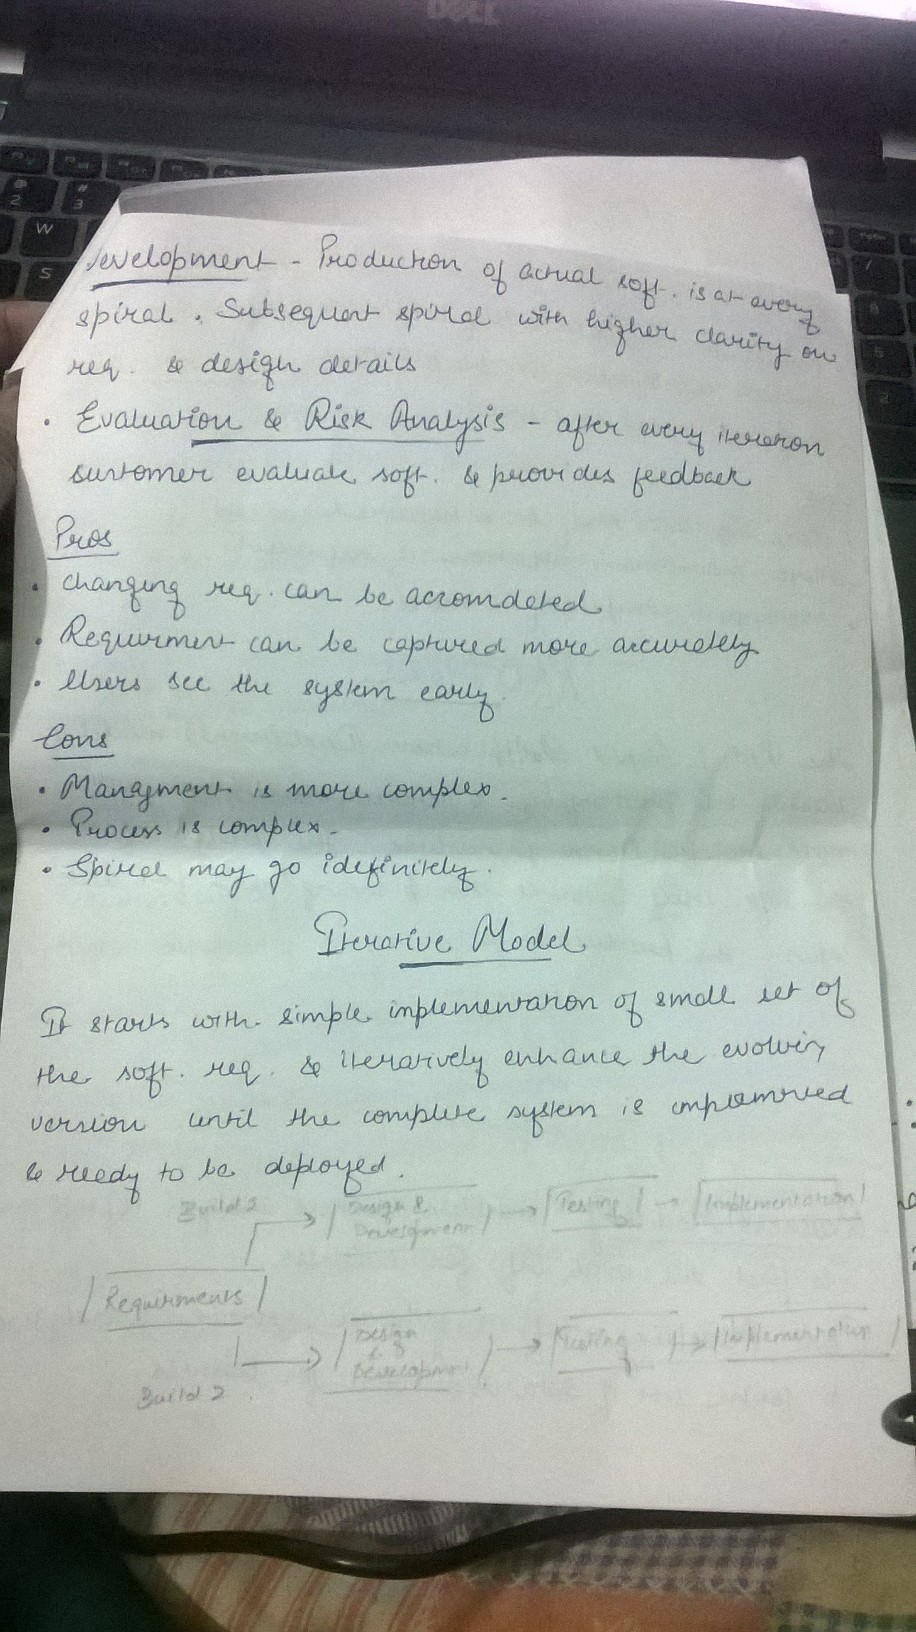 DELL
Development - Production of actual soft. is at every
spiral. Subsequent spiral with higher clarity on
req. & design details
• Evaluation & Risk Analysis - after every iteration
customer evaluate soft. & provides feedback
Pros
• Changing req. can be accomdeted
• Requirment can be captured more accurately
• Users see the system early.
Cons
• Managment is more complex.
• Process is complex.
• Spiral may go idefinitely.
Iterative Model
It starts with simple implementation of small set of
the soft. req. & iteratively enhance the evolving
version until the complete system is
& ready to be deployed.
Build
Design & Development
Testing
Implementation
Requirments
Design & Development
Testing
Implementation
Build 2